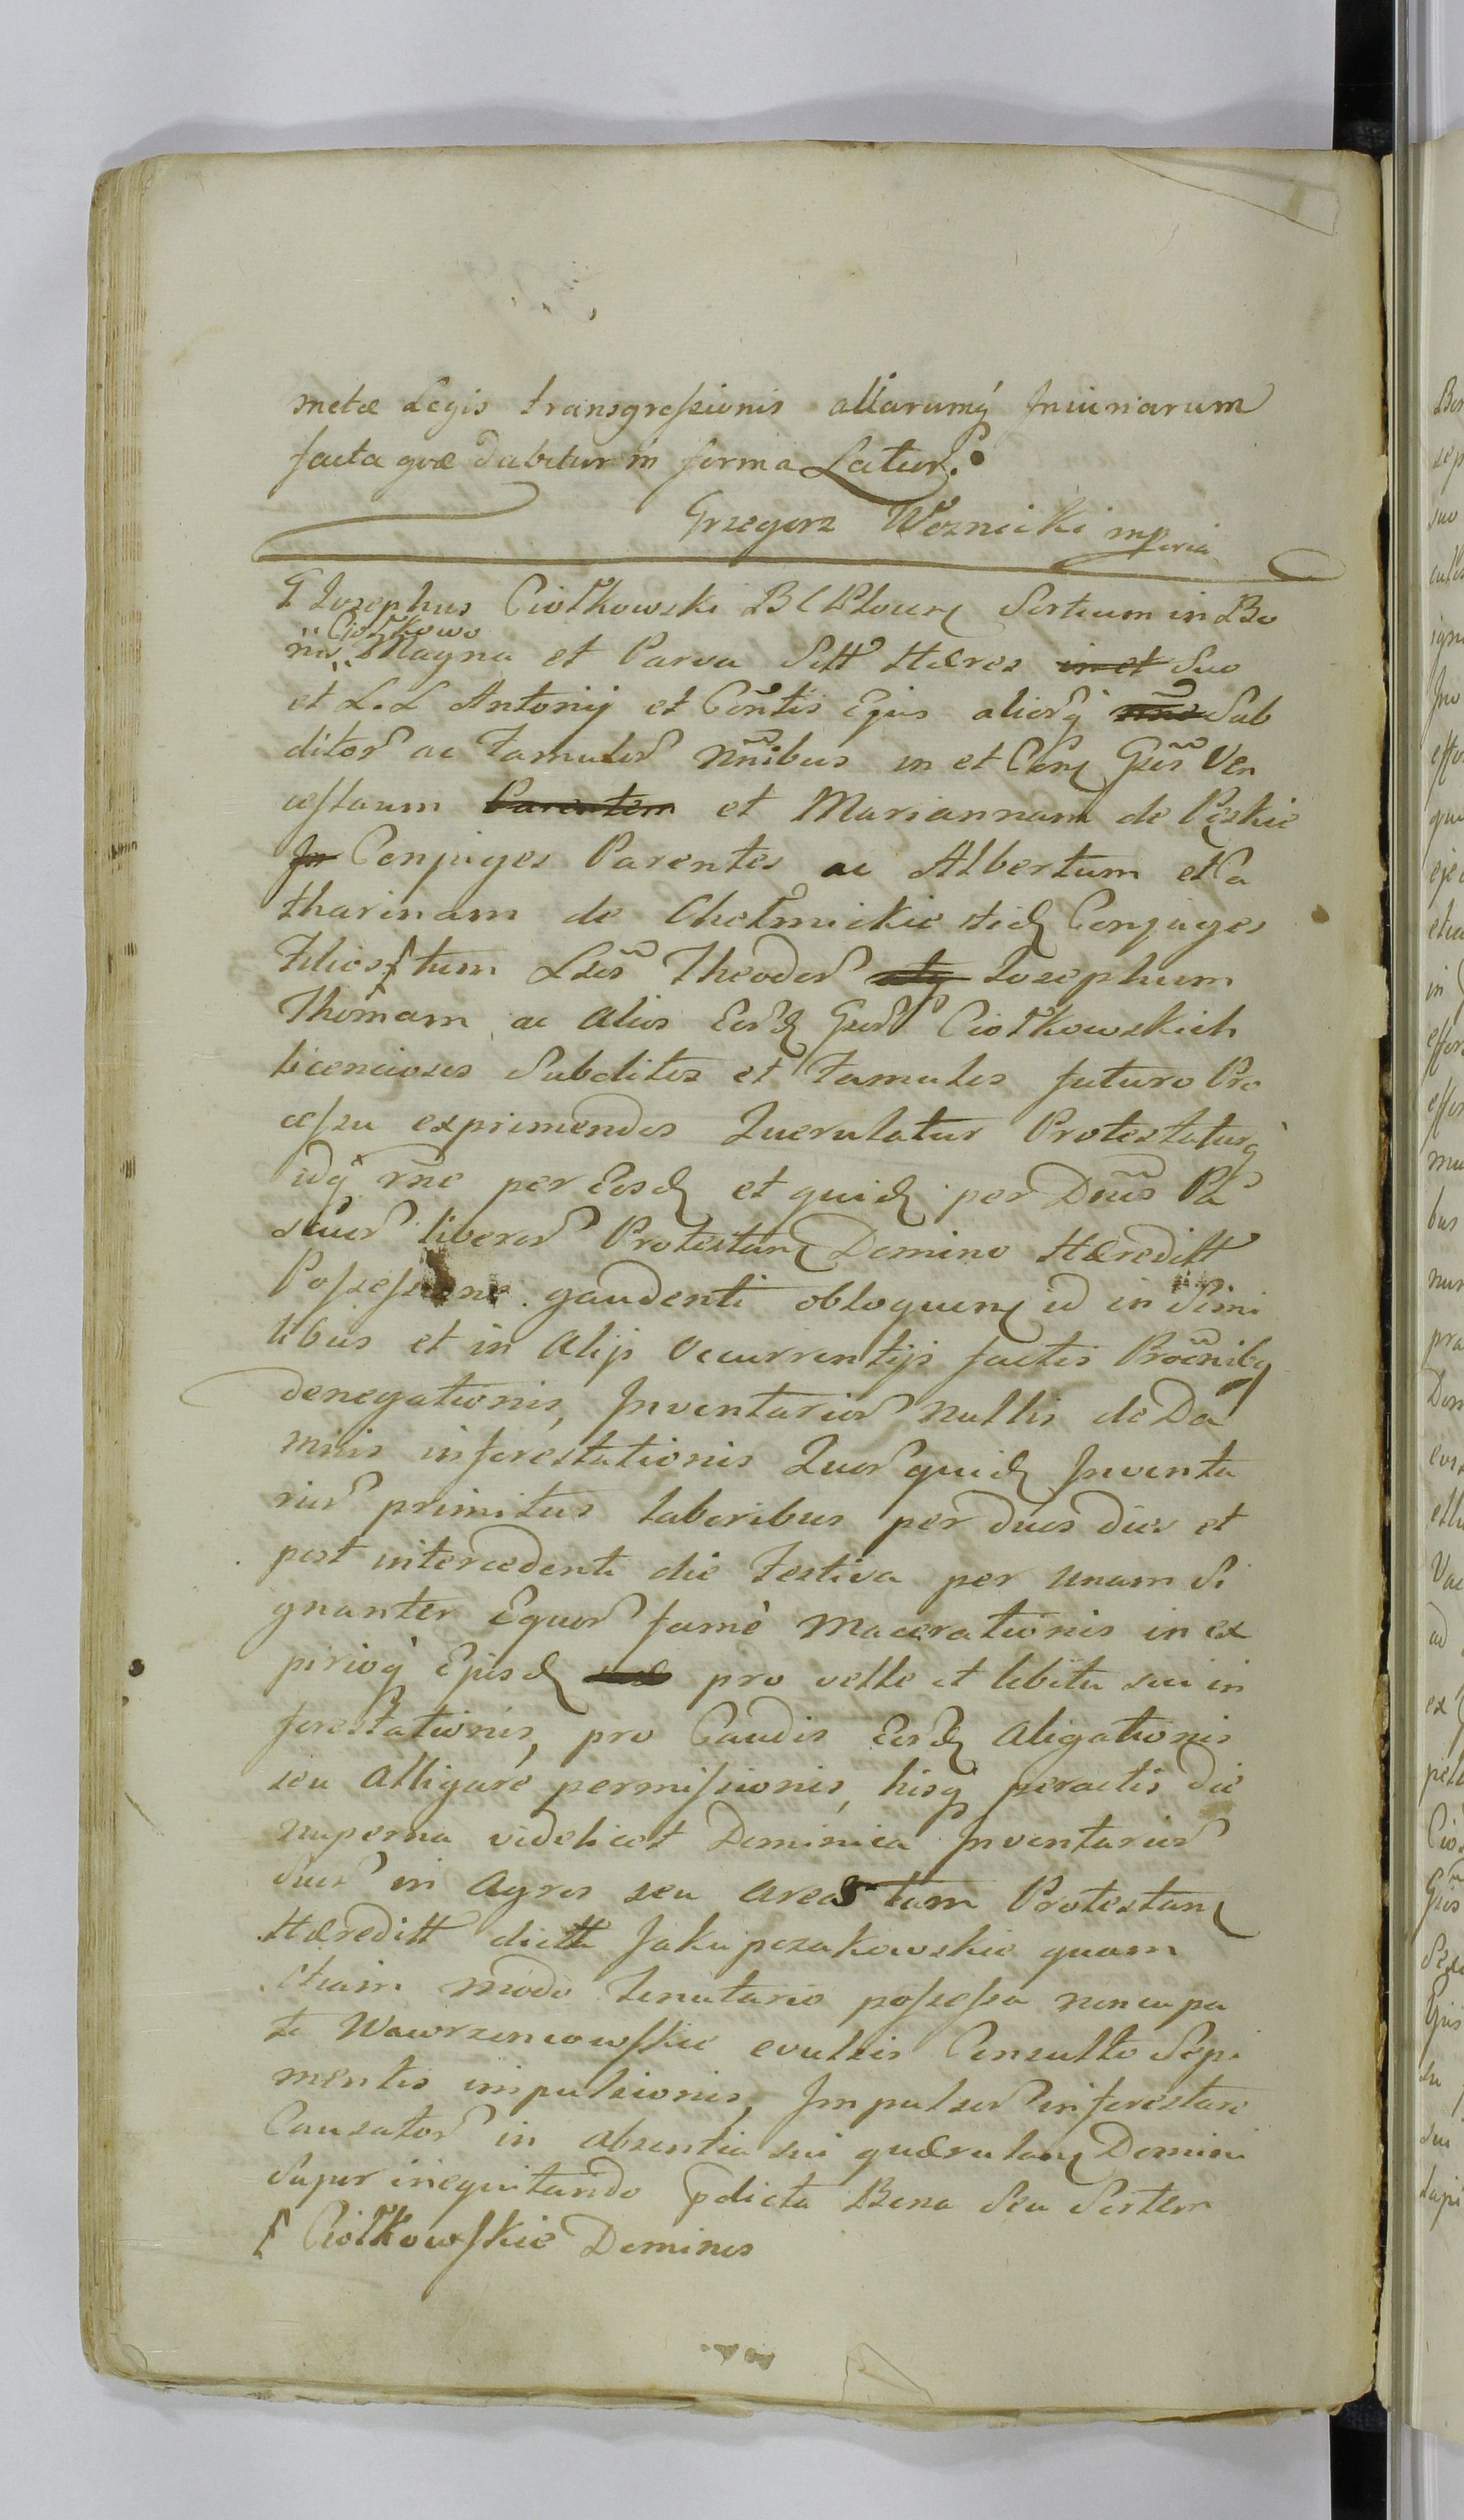 metæ Legis transgressionis aliarumq́ Injuriarum
facta quæ dabitur in forma Latior.
Grzegorz Woznicki mpria
G Josephus Ciołkowski B C Plocen Sortium in Bo
nis Ciołkowo Magna et Parva Sitt Hæres in et Suo
et L. L Antonij et Contis Ejus aliorq́ Sub
ditor ac Famulor Nnibus in et Con Gsos Ven
ceslaum Parentem et Mariannam de Peskie
In Conjuges Parentes ac Albertum et Ca
tharinam de Chełmickie itid Conjuges
Filios tum Lsos Theodor atq Josephum
Thomam ac alios Eord Gsor Ciołkowskich
licenciosos Subditos et Famulos futuro Pro
cessu exprimendos Querulatur Protestaturq́
idq́ rne per Eosd et quid per Dnos Pa
scuor liberor Protestan Domino Hæreditt
Possessione gaudenti obloquen id in Simi
libus et in Alijs Occurrentijs factis Procnibq
denegationis, Inventarior nullis de Da
mnis inforestationis Quor quid Inventa
rior primitus laboribus per duos dies et
post intercedenti die Festiva per unam Si
gnanter Equor famè macerationis in ex
pirioq́ Episd pro velle et libitu sui in
forestationis, pro Caudis Eord Aligationis
seu Alligare permissionis, hisq́ peractis die
nuperna videlicet Dominica Inventarior
suor in Agros seu areas tam Protestan
Hæreditt dictt Jakupczakowskie quam
etiam modo Tenutario possessa nuncupa
ta Wawrzencowskie evulsis Consulto Sepi
mentis impulsionis, Impulsor inforestare
Causator in absentia sui quærulan Domini
Super inequitando pdicta Bona Seu Sortem
Ciołkowskie Dominos